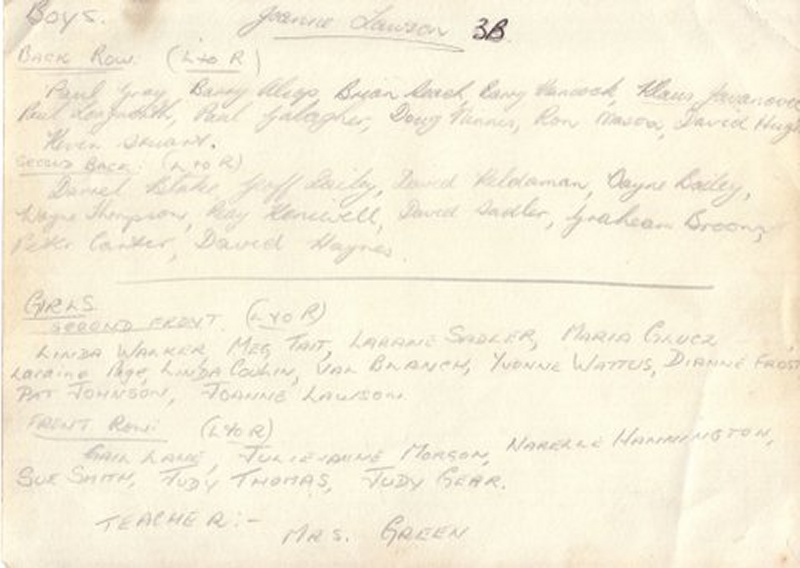 Boys.
Joanne Lawson 3B
BACK ROW. (L to R)
Paul Gray Barry Alsop, Brian Leach, Barry Hancock, Klaus
Paul Longworth, Paul Gallagher, Doug Ron Mason, David
Kevin Stuart.
SECOND BACK: (L to R)
Daniel Blake, Geoff Bailey, David Veldaman, Wayne Bailey,
Wayne Thompson, Ray David Sadler, Graheam Broom,
Peter Carter, David Haynes.
GIRLS
SECOND FRONT. (L to R)
LINDA WALKER, MEG TAIT, LARAINE SADLER, MARIA GLUCZ
Laraine Page, LINDA VAL BRANCH, YVONNE WATTUS, DIANNE FROST
PAT JOHNSON, JOANNE LAWSON.
FRONT ROW: (L to R)
GAIL LANE, JULIE-ANNE MORGON, NARELLE HAMMINGTON,
SUE SMITH, JUDY THOMAS, JUDY GEAR.
TEACHER:-
MRS. GREEN